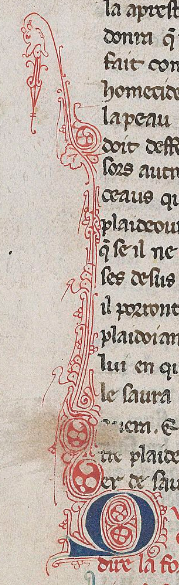 la aprest
donra q̃
fait con
homecide
la peau
doit deffe
sors autr
ceaus qu
plaideour
q̃ se il ne
ses desus
il porront
plaidoian
lui en qu
le saura
plaide
er de sau
D
dire la fo